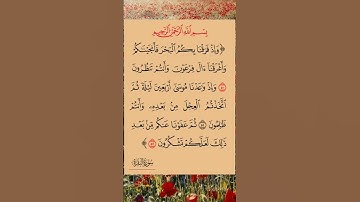 بِسْمِ ٱللَّهِ ٱلرَّحْمَٰنِ ٱلرَّحِيمِ
﴿وَإِذْ فَرَقْنَا بِكُمُ ٱلْبَحْرَ فَأَنجَيْنَٰكُمْ
وَأَغْرَقْنَآ ءَالَ فِرْعَوْنَ وَأَنتُمْ تَنظُرُونَ
۝٥٠ وَإِذْ وَٰعَدْنَا مُوسَىٰٓ أَرْبَعِينَ لَيْلَةً ثُمَّ
ٱتَّخَذْتُمُ ٱلْعِجْلَ مِنۢ بَعْدِهِۦ وَأَنتُمْ
ظَٰلِمُونَ ۝٥١ ثُمَّ عَفَوْنَا عَنكُم مِّنۢ بَعْدِ
ذَٰلِكَ لَعَلَّكُمْ تَشْكُرُونَ ۝٥٢﴾
سُورَةُ البَقَرَةِ